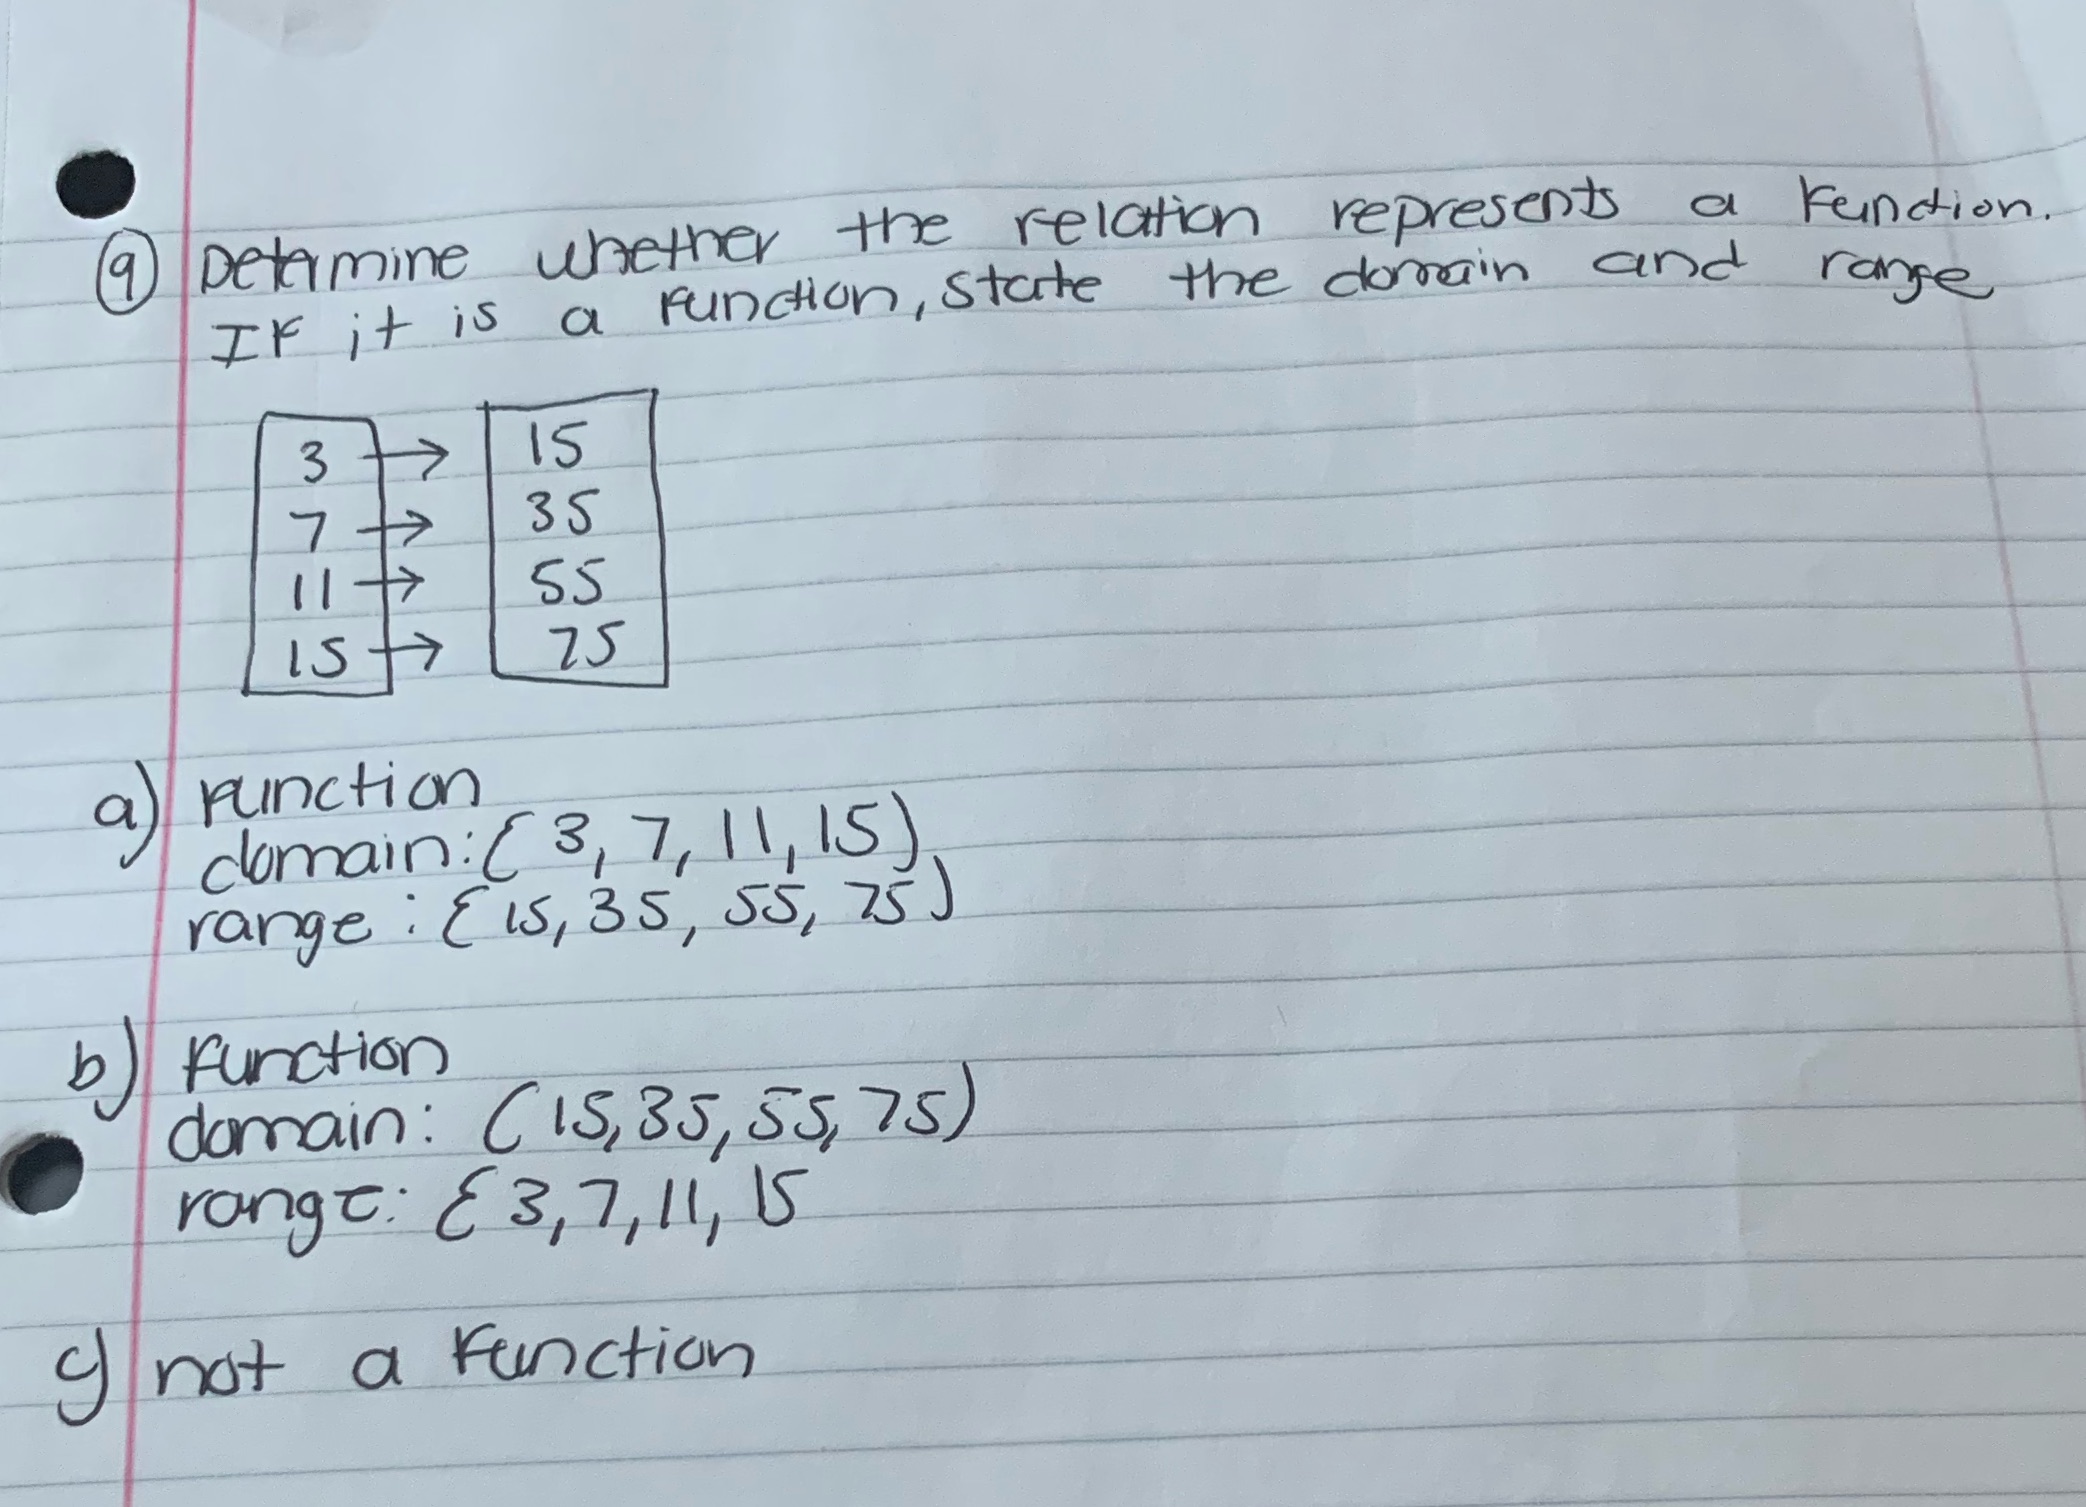 9 Determine whether the relation represents a function.
If it is a function, state the domain and range
3 → 15
7 → 35
11 → 55
15 → 75
a) function
domain: { 3, 7, 11, 15 )
range : { 15, 35, 55, 75 )
b) function
domain: ( 15, 35, 55, 75 )
range: { 3, 7, 11, 15
c) not a function